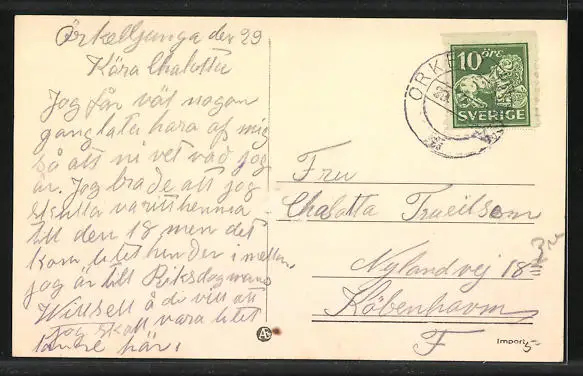 Örkelljunga den 29
Kära Chalotta
Jog får väl nogon
gang lata hara af mig
så att ni vet vad jog
är. Jog brade att jog
skulla varitt hemma
till den 18 men det
kom litet hender i mellan
jog är till Riksdogmans
Willsell å di vill att
jog skall vara litet
länore här.
ÖRKE
10 ÖRE
SVERIGE
Fru
Chalotta Trueilsom
Nylandvej 18 III
København
F
Import